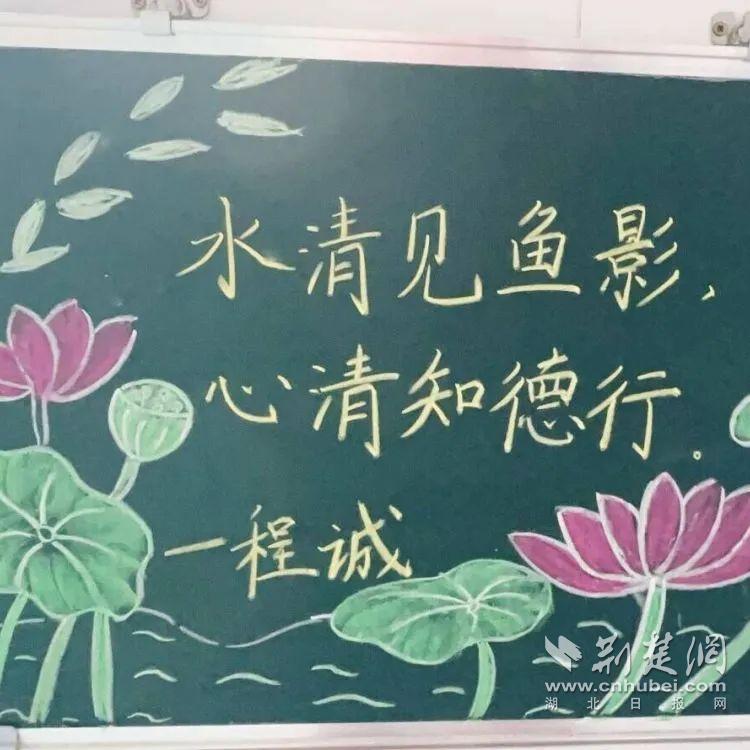 水清见鱼影，
心清知德行。
一程诚
荆楚网
www.cnhubei.com
湖北日报网